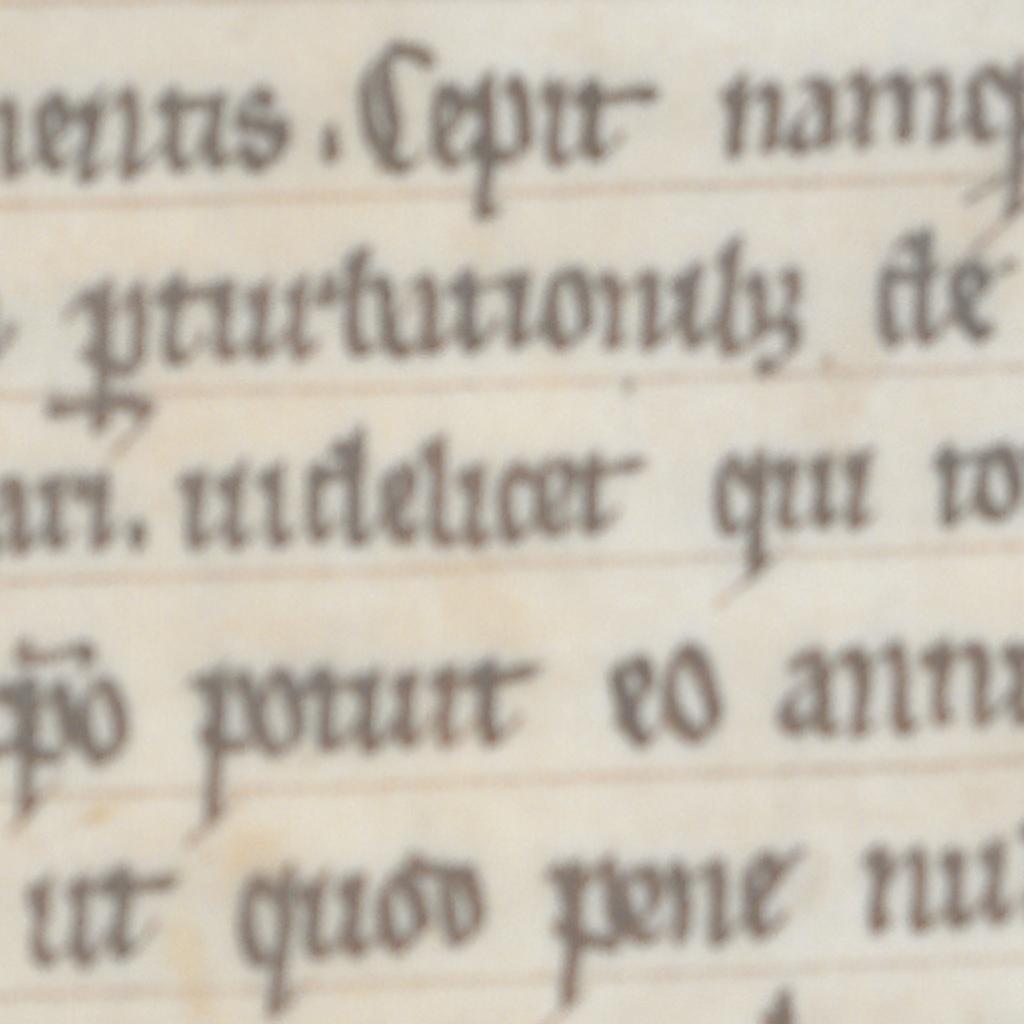 nentis . Cepit namq
ꝑturbationibꝫ de
ari. uidelicet qui to
ꝑio potuit eo annu
ut quod pene nu